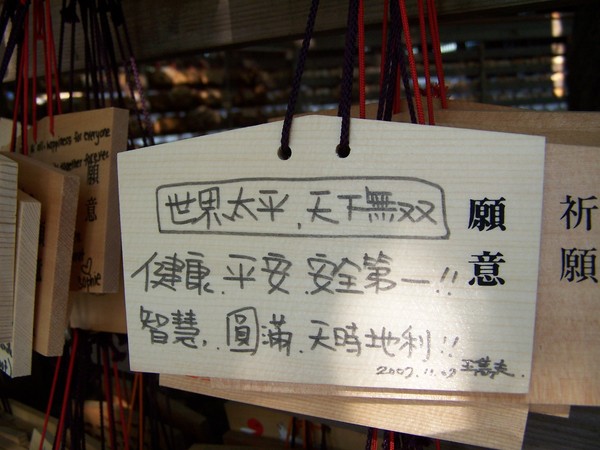 世界太平,天下無双
健康.平安.安全第一!!
智慧,圓滿.天時地利!!
2007.11.07
願意
祈願
all happiness for everyone
together
願意